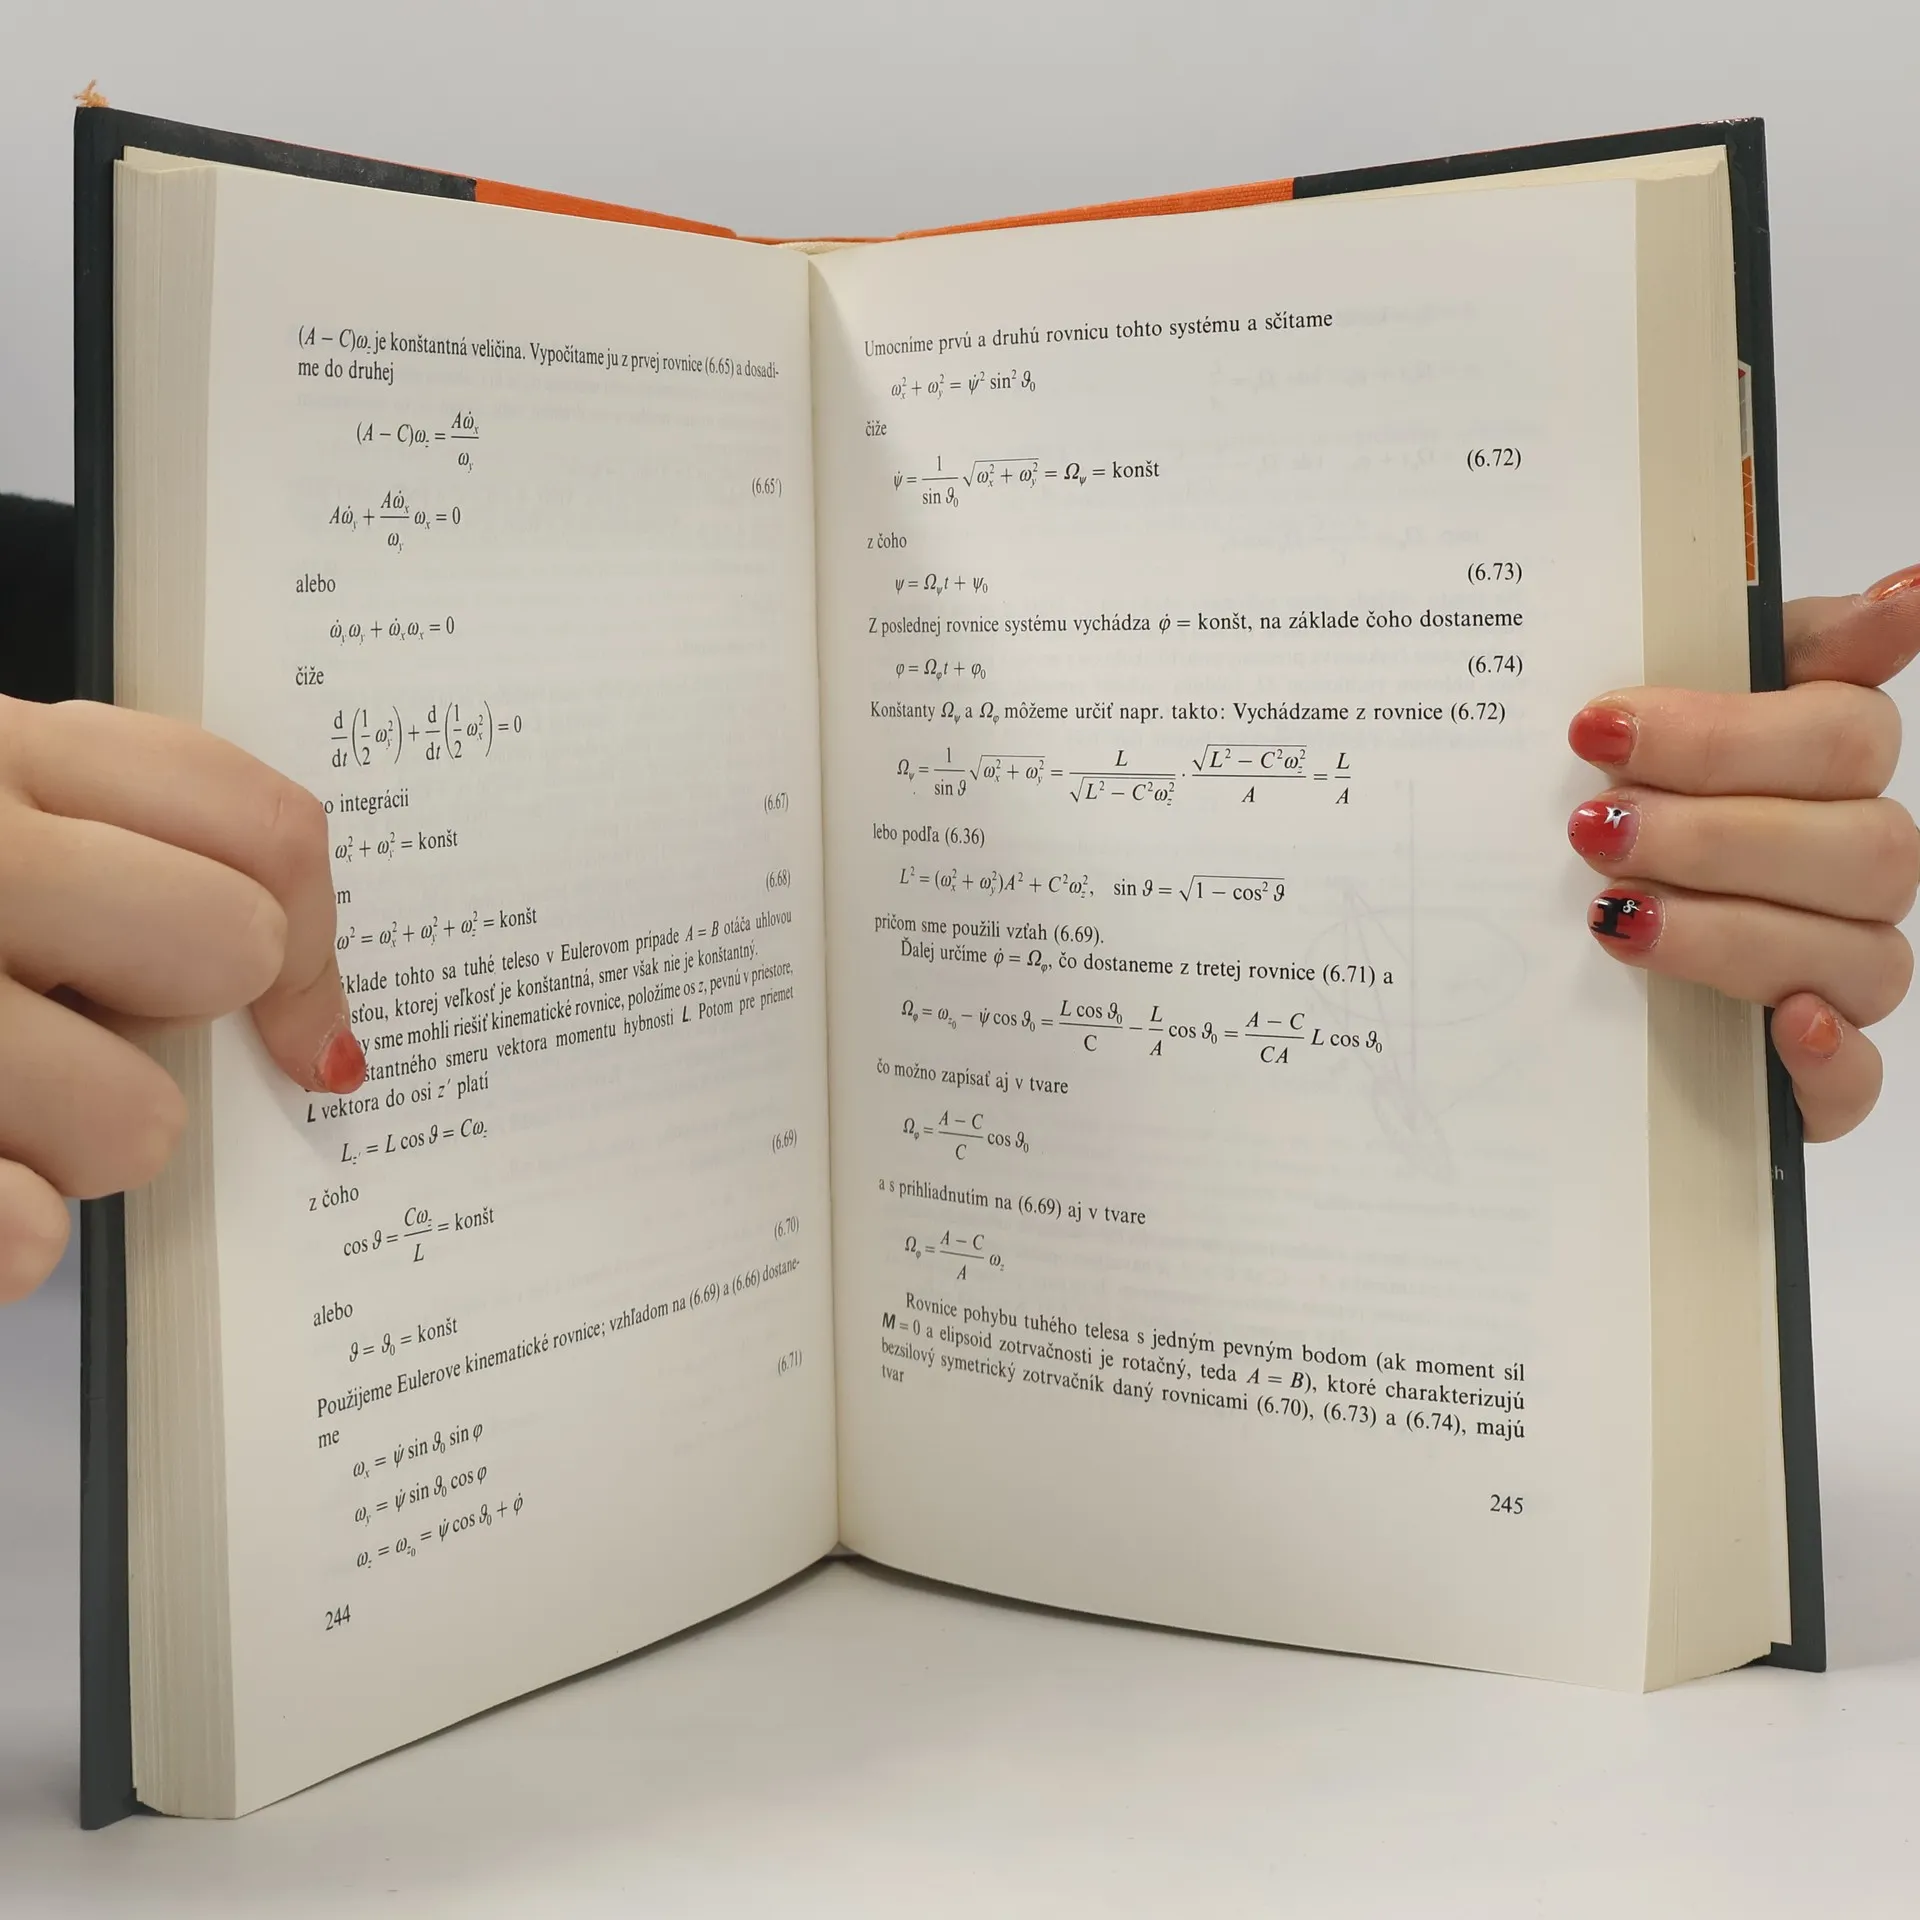 (A − C)ω_z je konštantná veličina. Vypočítame ju z prvej rovnice (6.65) a dosadí-
me do druhej
(A − C)ω_z = Aω̇_x / ω_y
Aω̇_y + (Aω̇_x / ω_y) ω_x = 0 (6.65′)
alebo
ω̇_y ω_y + ω̇_x ω_x = 0
čiže
d/dt (1/2 ω_y²) + d/dt (1/2 ω_x²) = 0
o integrácii
ω_x² + ω_y² = konšt (6.67)
m
ω² = ω_x² + ω_y² + ω_z² = konšt (6.68)
klade tohto sa tuhé teleso v Eulerovom prípade A = B otáča uhlovou
sťou, ktorej veľkosť je konštantná, smer však nie je konštantný.
y sme mohli riešiť kinematické rovnice, položíme os z, pevnú v priestore,
štantného smeru vektora momentu hybnosti L. Potom pre priemet
L vektora do osi z′ platí
L_z′ = L cos ϑ = Cω_z (6.69)
z čoho
cos ϑ = Cω_z / L = konšt
alebo
ϑ = ϑ₀ = konšt (6.70)
Použijeme Eulerove kinematické rovnice; vzhľadom na (6.69) a (6.66) dostane-
me
ω_x = ψ̇ sin ϑ₀ sin φ
ω_y = ψ̇ sin ϑ₀ cos φ (6.71)
ω_z = ω_z₀ = ψ̇ cos ϑ₀ + φ̇
244
Umocníme prvú a druhú rovnicu tohto systému a sčítame
ω_x² + ω_y² = ψ̇² sin² ϑ₀
čiže
ψ̇ = 1/sin ϑ₀ √(ω_x² + ω_y²) = Ω_ψ = konšt (6.72)
z čoho
ψ = Ω_ψ t + ψ₀ (6.73)
Z poslednej rovnice systému vychádza φ̇ = konšt, na základe čoho dostaneme
φ = Ω_φ t + φ₀ (6.74)
Konštanty Ω_ψ a Ω_φ môžeme určiť napr. takto: Vychádzame z rovnice (6.72)
Ω_ψ = 1/sin ϑ √(ω_x² + ω_y²) = L/√(L² − C²ω_z²) · √(L² − C²ω_z²)/A = L/A
lebo podľa (6.36)
L² = (ω_x² + ω_y²)A² + C²ω_z², sin ϑ = √(1 − cos² ϑ)
pričom sme použili vzťah (6.69).
Ďalej určíme φ̇ = Ω_φ, čo dostaneme z tretej rovnice (6.71) a
Ω_φ = ω_z₀ − ψ̇ cos ϑ₀ = L cos ϑ₀ / C − L/A cos ϑ₀ = (A − C)/CA L cos ϑ₀
čo možno zapísať aj v tvare
Ω_φ = (A − C)/C cos ϑ₀
a s prihliadnutím na (6.69) aj v tvare
Ω_φ = (A − C)/A ω_z
Rovnice pohybu tuhého telesa s jedným pevným bodom (ak moment síl
M = 0 a elipsoid zotrvačnosti je rotačný, teda A = B), ktoré charakterizujú
bezsilový symetrický zotrvačník daný rovnicami (6.70), (6.73) a (6.74), majú
tvar
245